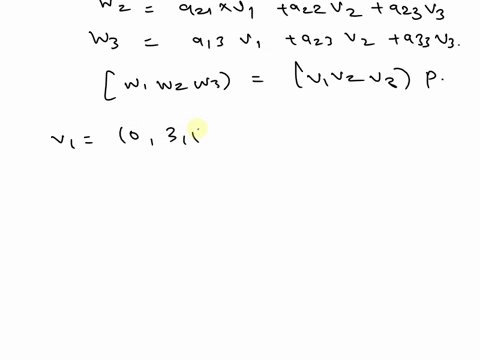 W2 = a21 x v1 + a22 v2 + a23 v3
W3 = a13 v1 + a23 v2 + a33 v3.
[w1 w2 w3) = (v1 v2 v3) P.
v1 = (0, 3, (